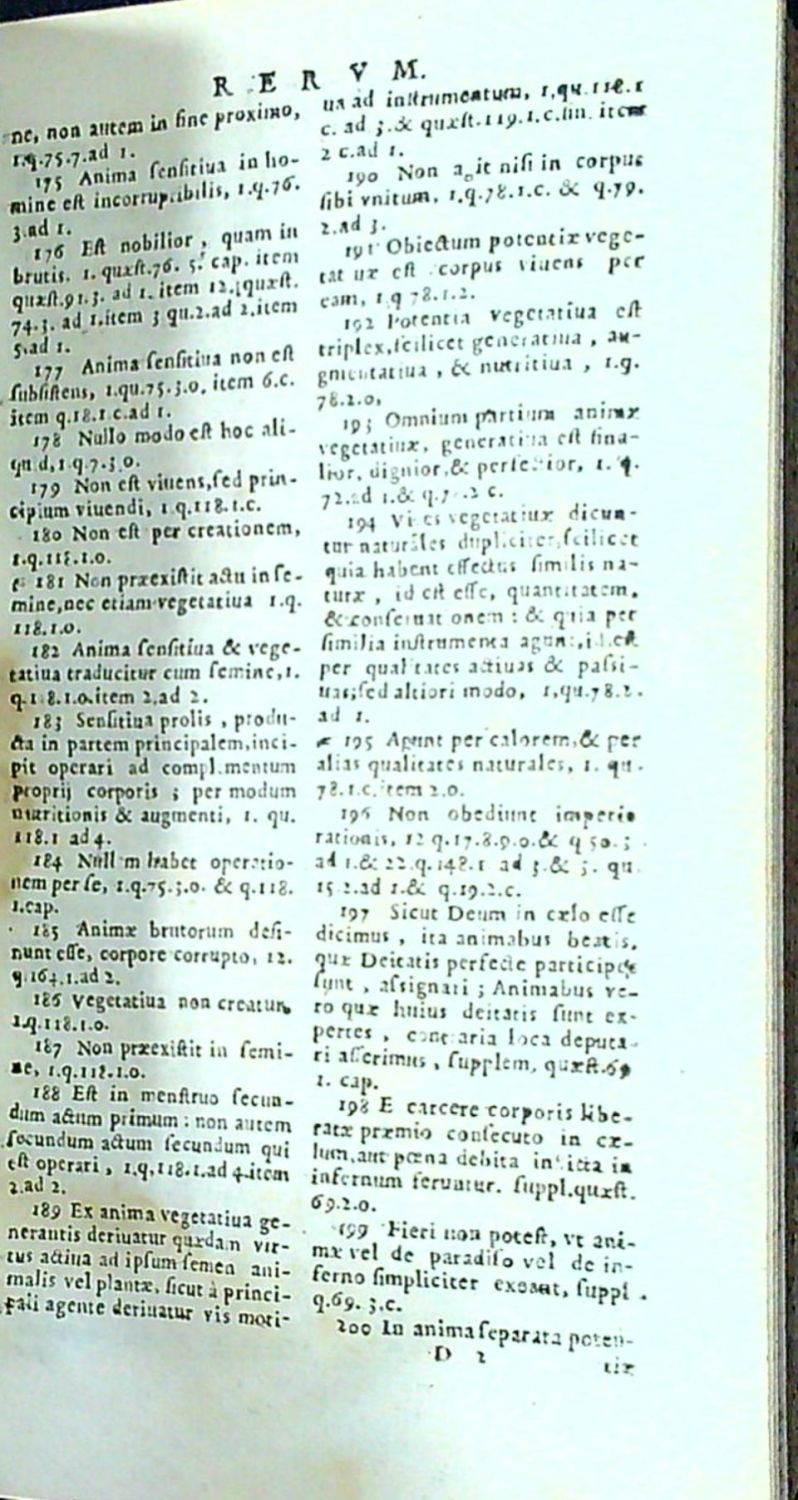 R E R V M.
ne, non autem in fine proximo,
1.q.75.7.ad 1.
175 Anima ſenſitiua in ho-
mine eſt incorruptibilis, 1.q.76.
3.ad 1.
176 Eſt nobilior, quam in
brutis. 1. quæſt.76. 5. cap. item
quæſt.91.3. ad 1. item 12. quæſt.
74.3. ad 1.item 3 qu.2.ad 2.item
5.ad 1.
177 Anima ſenſitiua non eſt
ſubſiſtens, 1.qu.75.3.o. item 6.c.
item q.18.1.c.ad 1.
178 Nullo modo eſt hoc ali-
1.q.7.3.o.
179 Non eſt viuens, ſed prin-
cipium viuendi, 1.q.118.1.c.
180 Non eſt per creationem,
1.q.118.1.o.
181 Non præexiſtit actu in ſe-
mine, nec etiam vegetatiua 1.q.
118.1.o.
182 Anima ſenſitiua & vege-
tatiua traducitur cum ſemine, 1.
q.118.1.o.item 2.ad 2.
183 Senſitiua prolis, produ-
cta in partem principalem, inci-
pit operari ad complementum
proprij corporis ; per modum
nutritionis & augmenti, 1. qu.
118.1 ad 4.
184 Nullam habet operatio-
nem per ſe, 1.q.75.3.o. & q.118.
1.cap.
185 Animæ brutorum deſi-
nunt eſſe, corpore corrupto, 12.
q.164.1.ad 2.
186 Vegetatiua non creatur,
1.q.118.1.o.
187 Non præexiſtit in ſemi-
ne, 1.q.118.1.o.
188 Eſt in menſtruo ſecun-
dum actum primum : non autem
ſecundum actum ſecundum qui
eſt operari, 1.q.118.1.ad 4.item
2.ad 2.
189 Ex anima vegetatiua ge-
nerantis deriuatur quædam vir-
tus actiua ad ipſum ſemen ani-
malis vel plantæ, ſicut à princi-
pali agente deriuatur vis moti-
ua ad inſtrumentum, 1.qu.118.1
c. ad 3.& quæſt.119.1.c.fin. item
2 c.ad 1.
190 Non agit niſi in corpus
ſibi vnitum, 1.q.78.1.c. & q.79.
2.ad 3.
191 Obiectum potentiæ vege-
tatiuæ eſt corpus viuens per
eam, 1.q 78.1.2.
192 Potentia vegetatiua eſt
triplex, ſcilicet generatiua, au-
gmentatiua, & nutritiua, 1.q.
78.2.o.
193 Omnium partium animæ
vegetatiuæ, generatiua eſt fina-
lior, dignior, & perfectior, 1. q.
72.ad 1.& 2 c.
194 Vires vegetatiuæ dicun-
tur naturales dupliciter, ſcilicet
quia habent effectus ſimilis na-
turæ, id eſt eſſe, quantitatem,
& conſeruationem : & quia per
ſimilia inſtrumenta agunt, i.d.eſt
per qualitates actiuas & paſſi-
uas; ſed altiori modo, 1.qu.78.2.
ad 1.
195 Agunt per calorem, & per
alias qualitates naturales, 1. qu.
78.1.c. item 2.o.
196 Non obediunt imperio
rationis, 12 q.17.8.9.o.& q 50.3
ad 1.& 22.q.148.1 ad 3.& 3. qu
15.2.ad 1.& q.19.2.c.
197 Sicut Deum in cælo eſſe
dicimus, ita animabus beatis,
quæ Deitatis perfecte participes
ſunt, aſſignati ; Animabus ve-
ro quæ huius deitatis ſunt ex-
pertes, contraria loca deputa-
ri aſſerimus, ſupplem, quæſt.69
1. cap.
198 E carcere corporis libe-
ratæ præmio conſecuto in cæ-
lum, aut pœna debita in
infernum feruntur. ſuppl.quæſt.
69.2.o.
199 Fieri non poteſt, vt ani-
mæ vel de paradiſo vel de in-
ferno ſimpliciter exeant, ſuppl.
q.69. 3.c.
200 In anima ſeparata poten-
D 2
tiæ